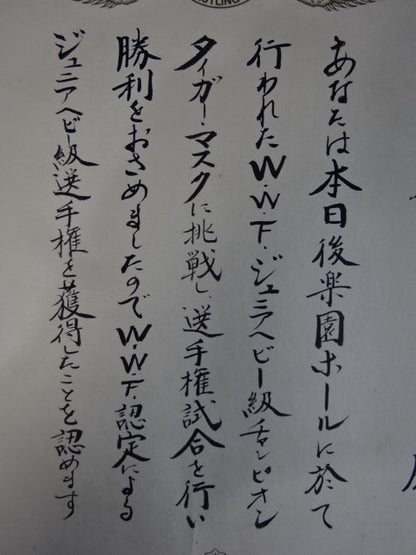 STLING
あなたは本日後楽園ホールに於て
行われたW・W・F・ジュニアヘビー級チャンピオン
タイガー・マスクに挑戦し選手権試合を行い
勝利をおさめましたのでW・W・F・認定による
ジュニアヘビー級選手権を獲得したことを認めます